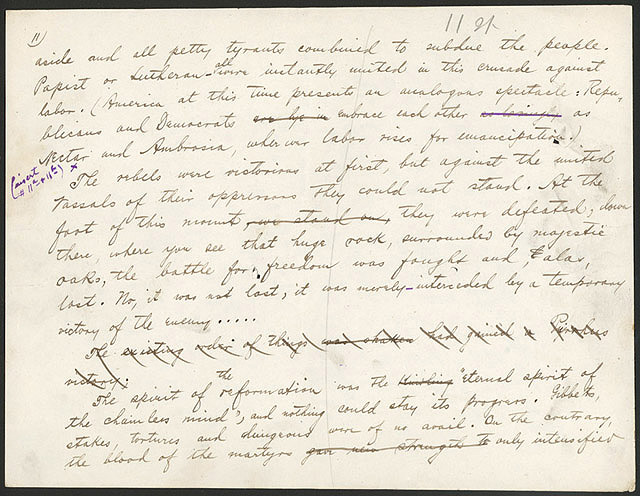 11
11 gr
aside and all petty tyrants combined to subdue the people.
Papist or Lutheran - all were instantly united in this crusade against
labor. (America at this time presents an analogous spectacle: Repu-
blicans and Democrats embrace each other as
Nectar and Ambrosia, wherever labor rises for emancipation.)
(insert # 11a + 11b) x
The rebels were victorious at first, but against the united
vassals of their oppressors they could not stand. At the
foot of this mount, we stand on, they were defeated; down
there, where you see that huge rock, surrounded by majestic
oaks, the battle for freedom was fought and ₤alas,
lost. No, it was not lost, it was merely interceded by a temporary
victory of the enemy.....
The existing order of things was shaken had gained a Pyrrhus
victory.
The spirit of the reformation was the kindling "Eternal spirit of
the chainless mind", and nothing could stay its progress. Gibbets,
stakes, tortures and dungeons were of no avail. On the contrary,
the blood of the martyrs gave new strength to only intensified